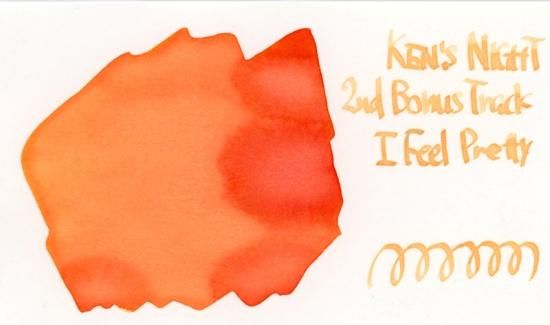 Ken's Night
2nd Bonus Track
I Feel Pretty